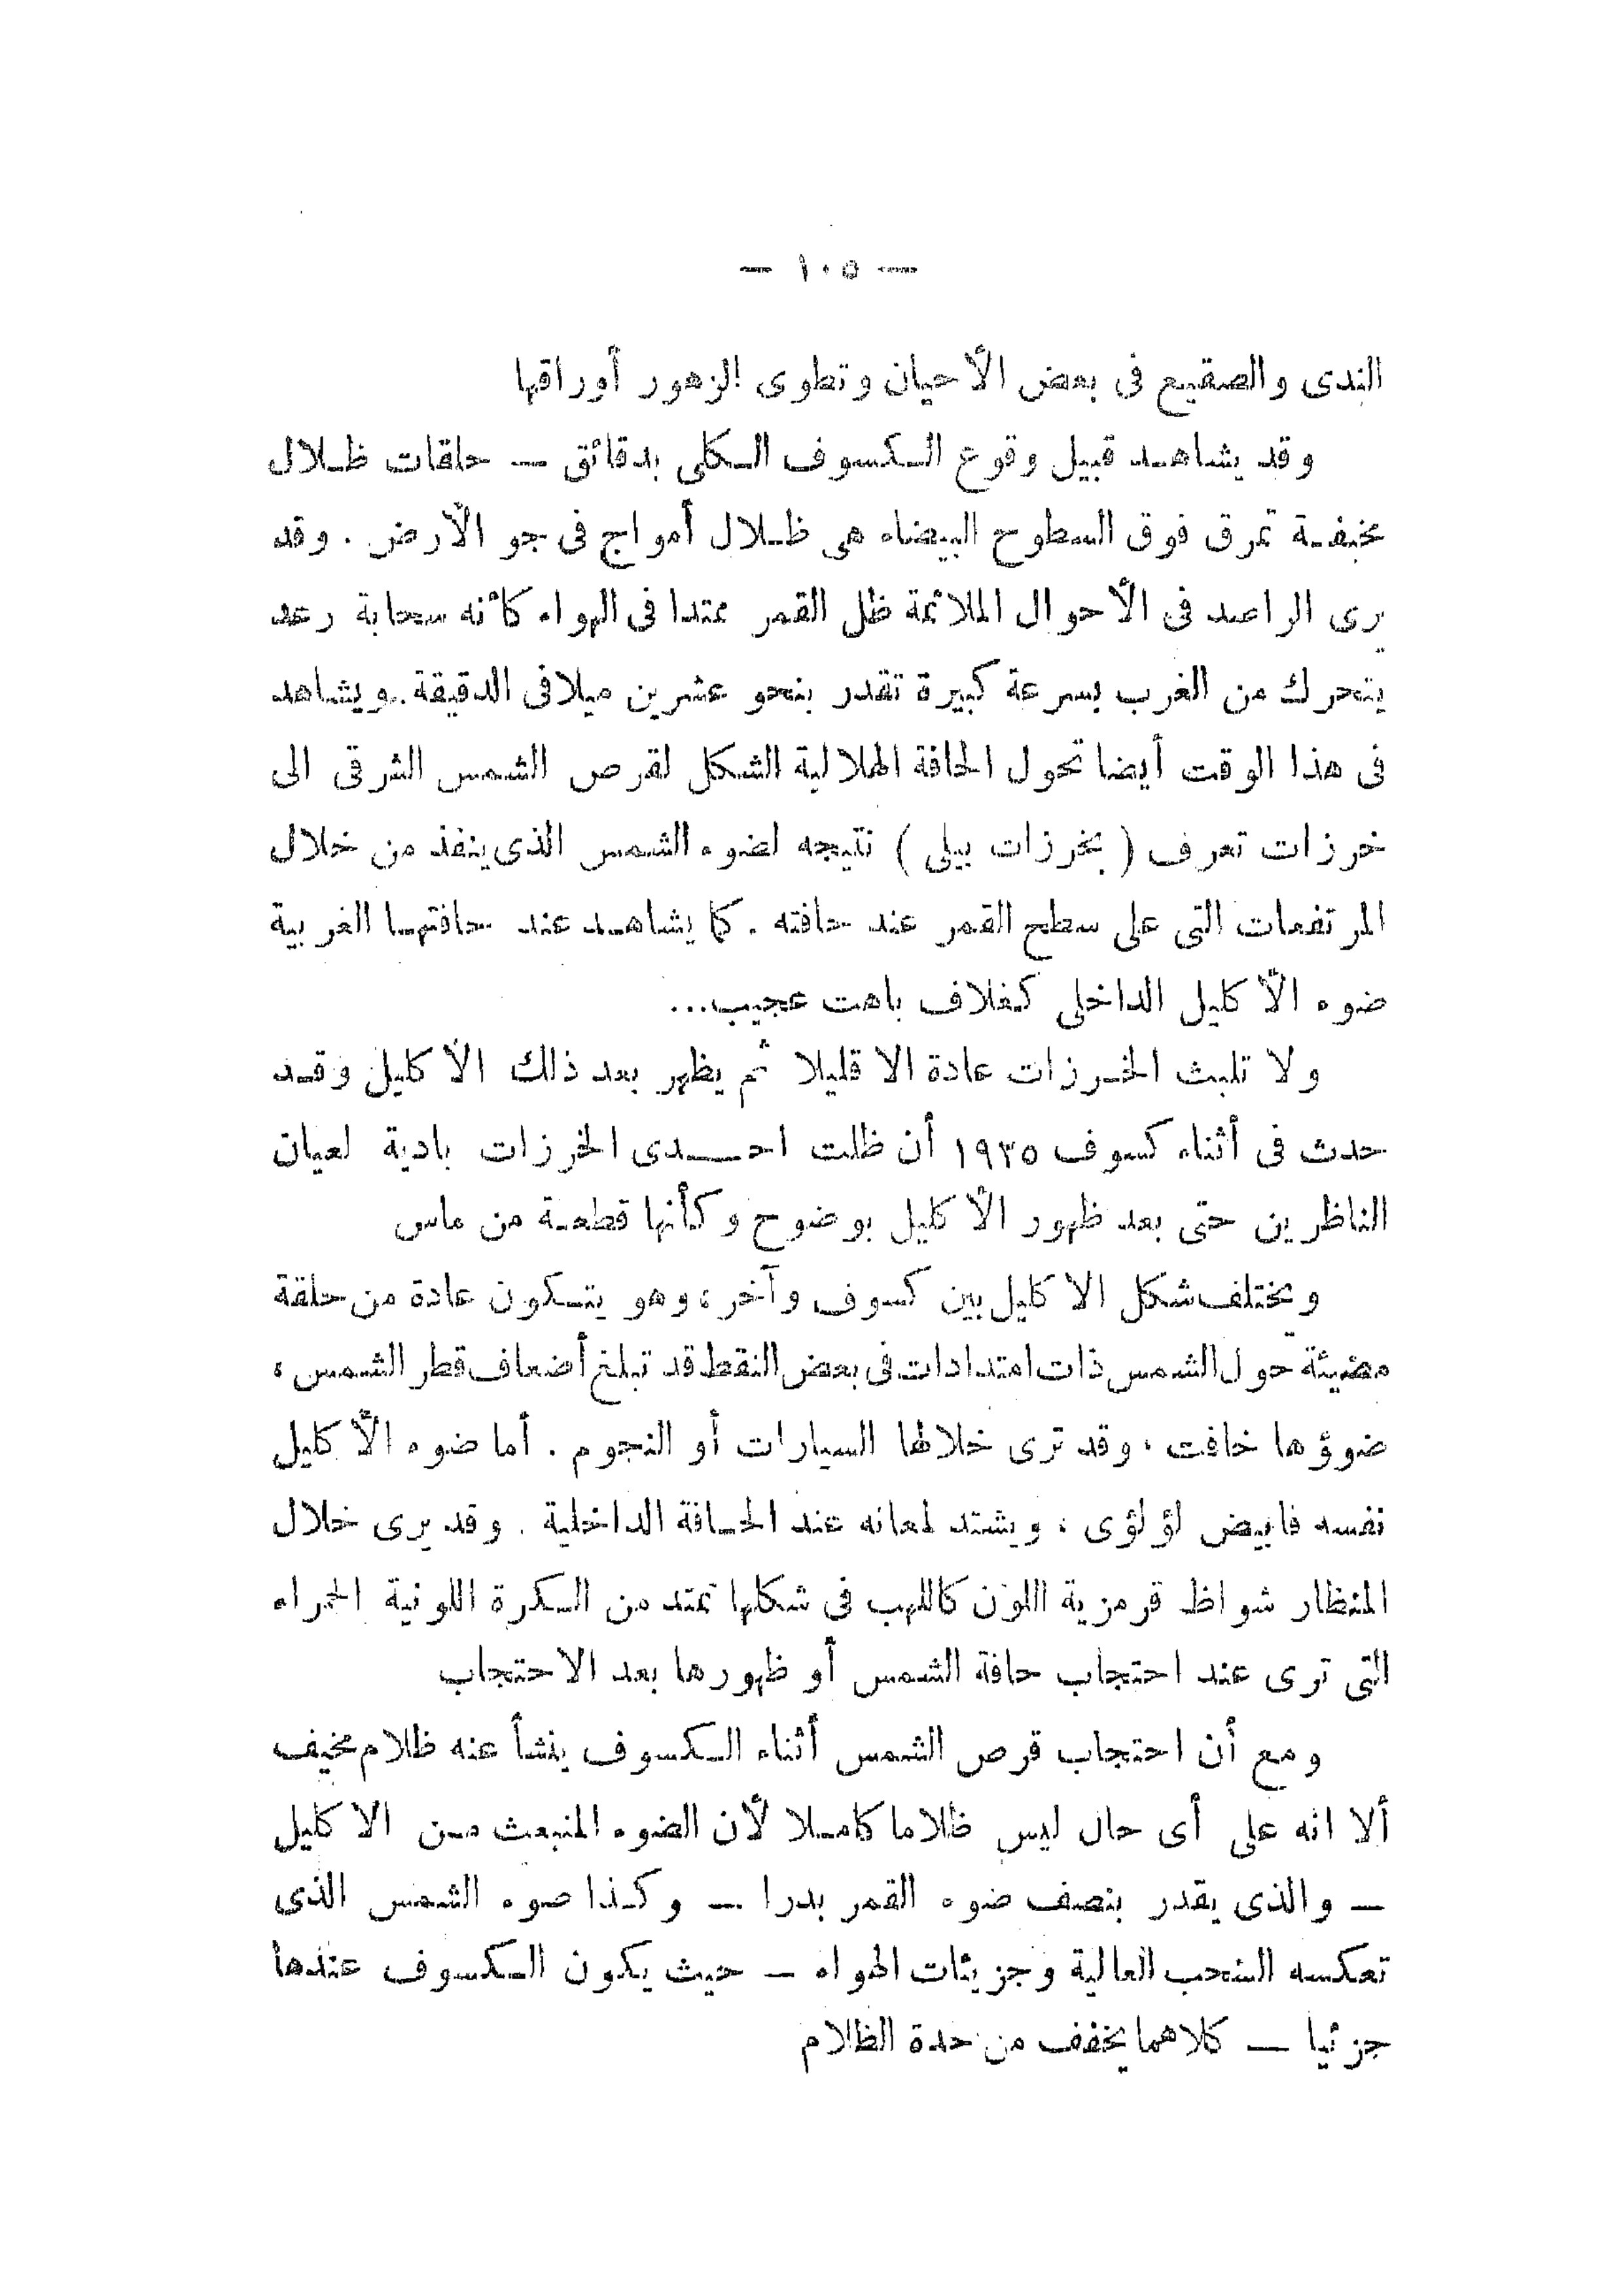 — ١٠٥ —
الندى والصقيع فى بعض الأحيان وتطوى الزهور أوراقها
وقد يشاهد قبيل وقوع الكسوف الكلى بدقائق — حلقات ظلال
مخيفة تمرق فوق السطوح البيضاء هى ظلال أمواج فى جو الأرض . وقد
يرى الراصد فى الأحوال الملائمة ظل القمر ممتدا فى الهواء كأنه سحابة رعد
يتحرك من الغرب بسرعة كبيرة تقدر بنحو عشرين ميلا فى الدقيقة . ويشاهد
فى هذا الوقت أيضا تحول الحافة الهلالية الشكل لقرص الشمس الشرقى الى
خرزات تعرف ( بخرزات بيلى ) نتيجه لضوء الشمس الذى ينفذ من خلال
المرتفعات التى على سطح القمر عند حافته . كما يشاهد عند حافتها الغربية
ضوء الأكليل الداخلى كغلاف باهت عجيب ...
ولا تلبث الخرزات عادة الا قليلا ثم يظهر بعد ذلك الأكليل وقد
حدث فى أثناء كسوف ١٩٢٥ أن ظلت احدى الخرزات بادية لعيان
الناظرين حتى بعد ظهور الأكليل بوضوح وكأنها قطعة من ماس
ويختلف شكل الاكليل بين كسوف وآخر ، وهو يتكون عادة من حلقة
مضيئة حول الشمس ذات امتدادات فى بعض النقط قد تبلغ أضعاف قطر الشمس ،
ضوؤها خافت ، وقد ترى خلالها السيارات أو النجوم . أما ضوء الأكليل
نفسه فابيض لؤلؤى ، ويشتد لمعانه عند الحافة الداخلية . وقد يرى خلال
المنظار شواظ قرمزية اللون كاللهب فى شكلها تمتد من الكرة اللونية الحمراء
التى ترى عند احتجاب حافة الشمس أو ظهورها بعد الاحتجاب
ومع أن احتجاب قرص الشمس أثناء الكسوف ينشأ عنه ظلام مخيف
ألا انه على أى حال ليس ظلاما كاملا لأن الضوء المنبعث من الاكليل
— والذى يقدر بنصف ضوء القمر بدرا — وكذا صوء الشمس الذى
تعكسه السحب العالية وجزيئات الهواء — حيث يكون الكسوف عندها
جزئيا — كلاهما يخفف من حدة الظلام